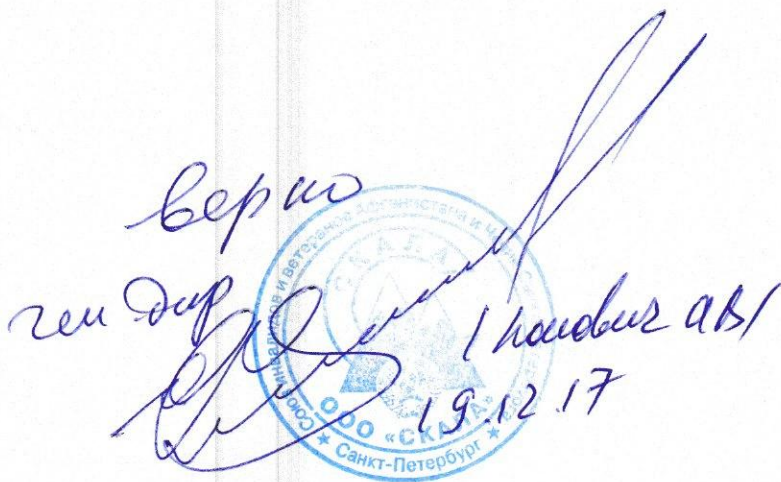 верно
ген дир
/ Попович АВ/
19.12.17
Союз инвалидов и ветеранов Афганистана и
СКАЛА
ООО «СКАЛА»
★ Санкт-Петербург ★